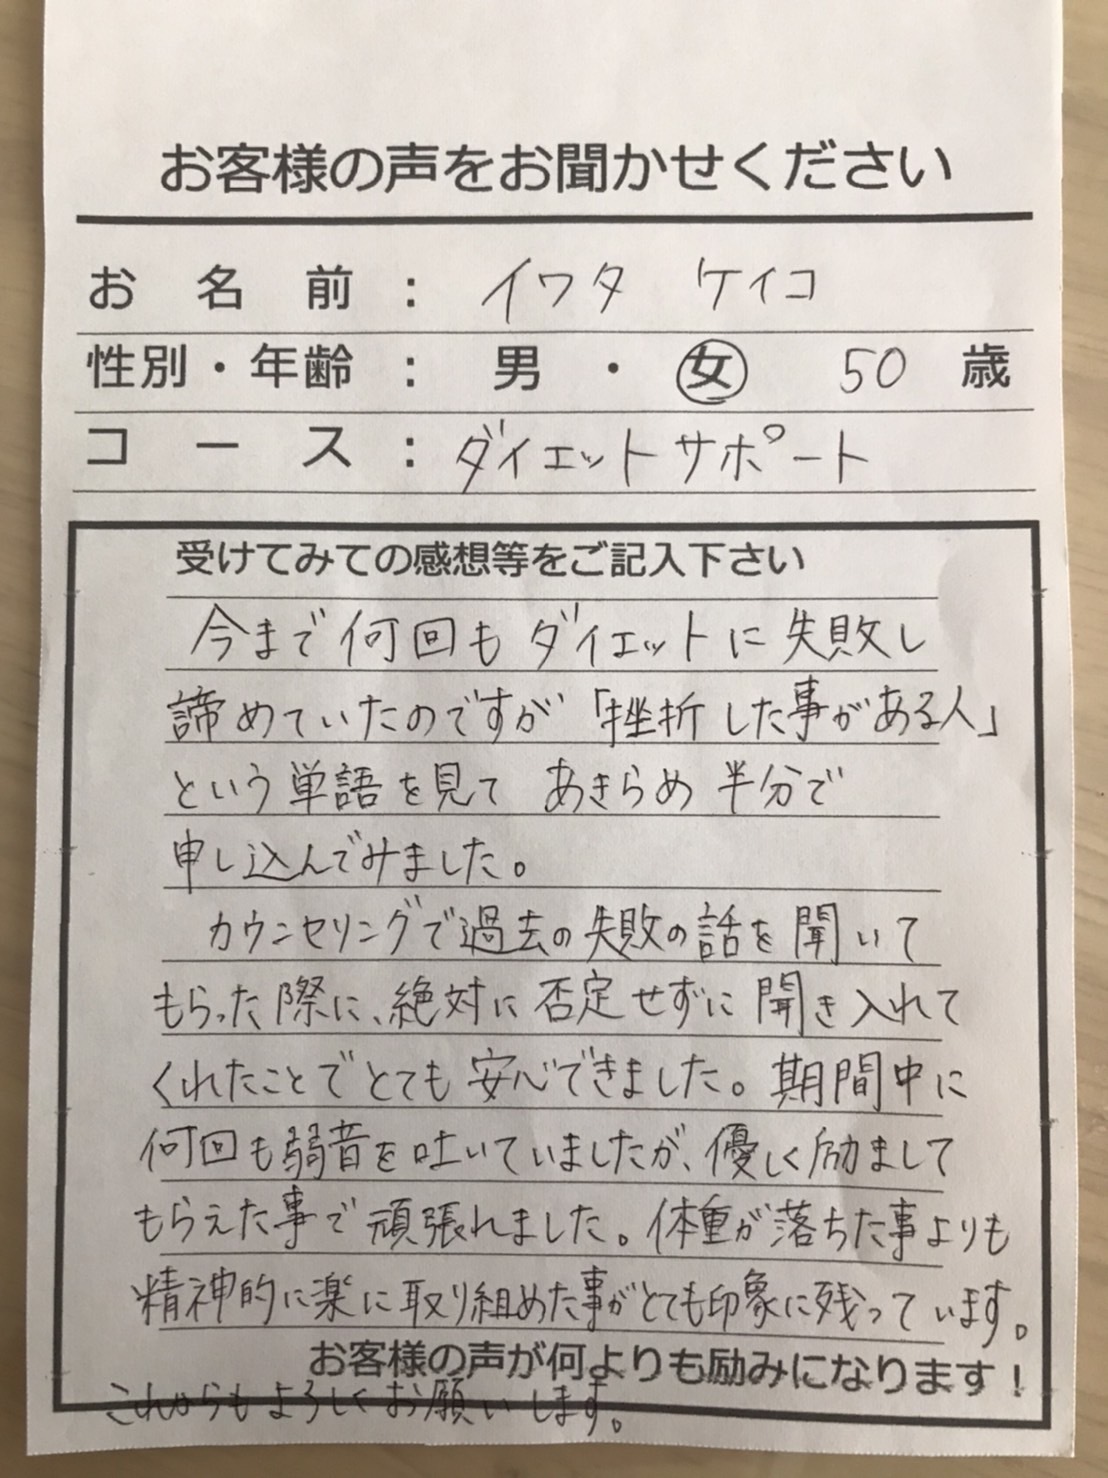 お客様の声をお聞かせください
お名前：イワタ ケイコ
性別・年齢：男・女 50歳
コース：ダイエットサポート
受けてみての感想等をご記入下さい
今まで何回もダイエットに失敗し
諦めていたのですが「挫折した事がある人」
という単語を見て あきらめ半分で
申し込んでみました。
カウンセリングで過去の失敗の話を聞いて
もらった際に、絶対に否定せずに聞き入れて
くれたことでとても安心できました。期間中に
何回も弱音を吐いていましたが、優しく励まして
もらえた事で頑張れました。体重が落ちた事よりも
精神的に楽に取り組めた事がとても印象に残っています。
お客様の声が何よりも励みになります！
これからもよろしくお願いします。